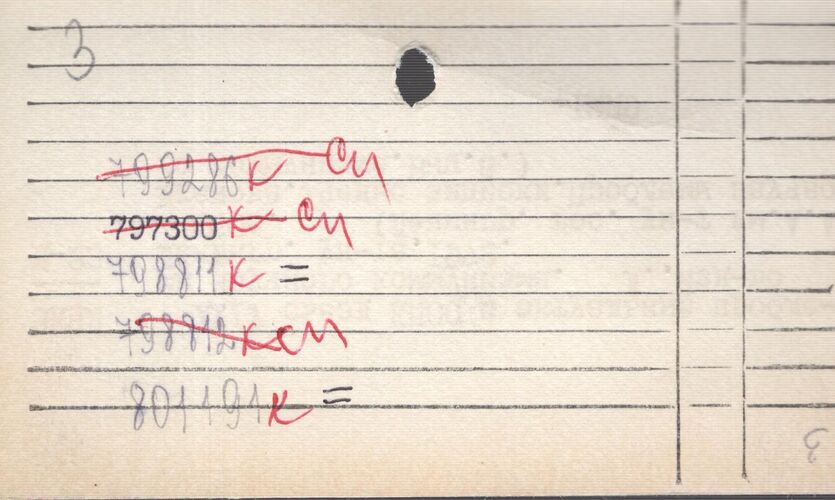 3
799286к сп
797300к сп
798811к =
798812к сп
801191к =